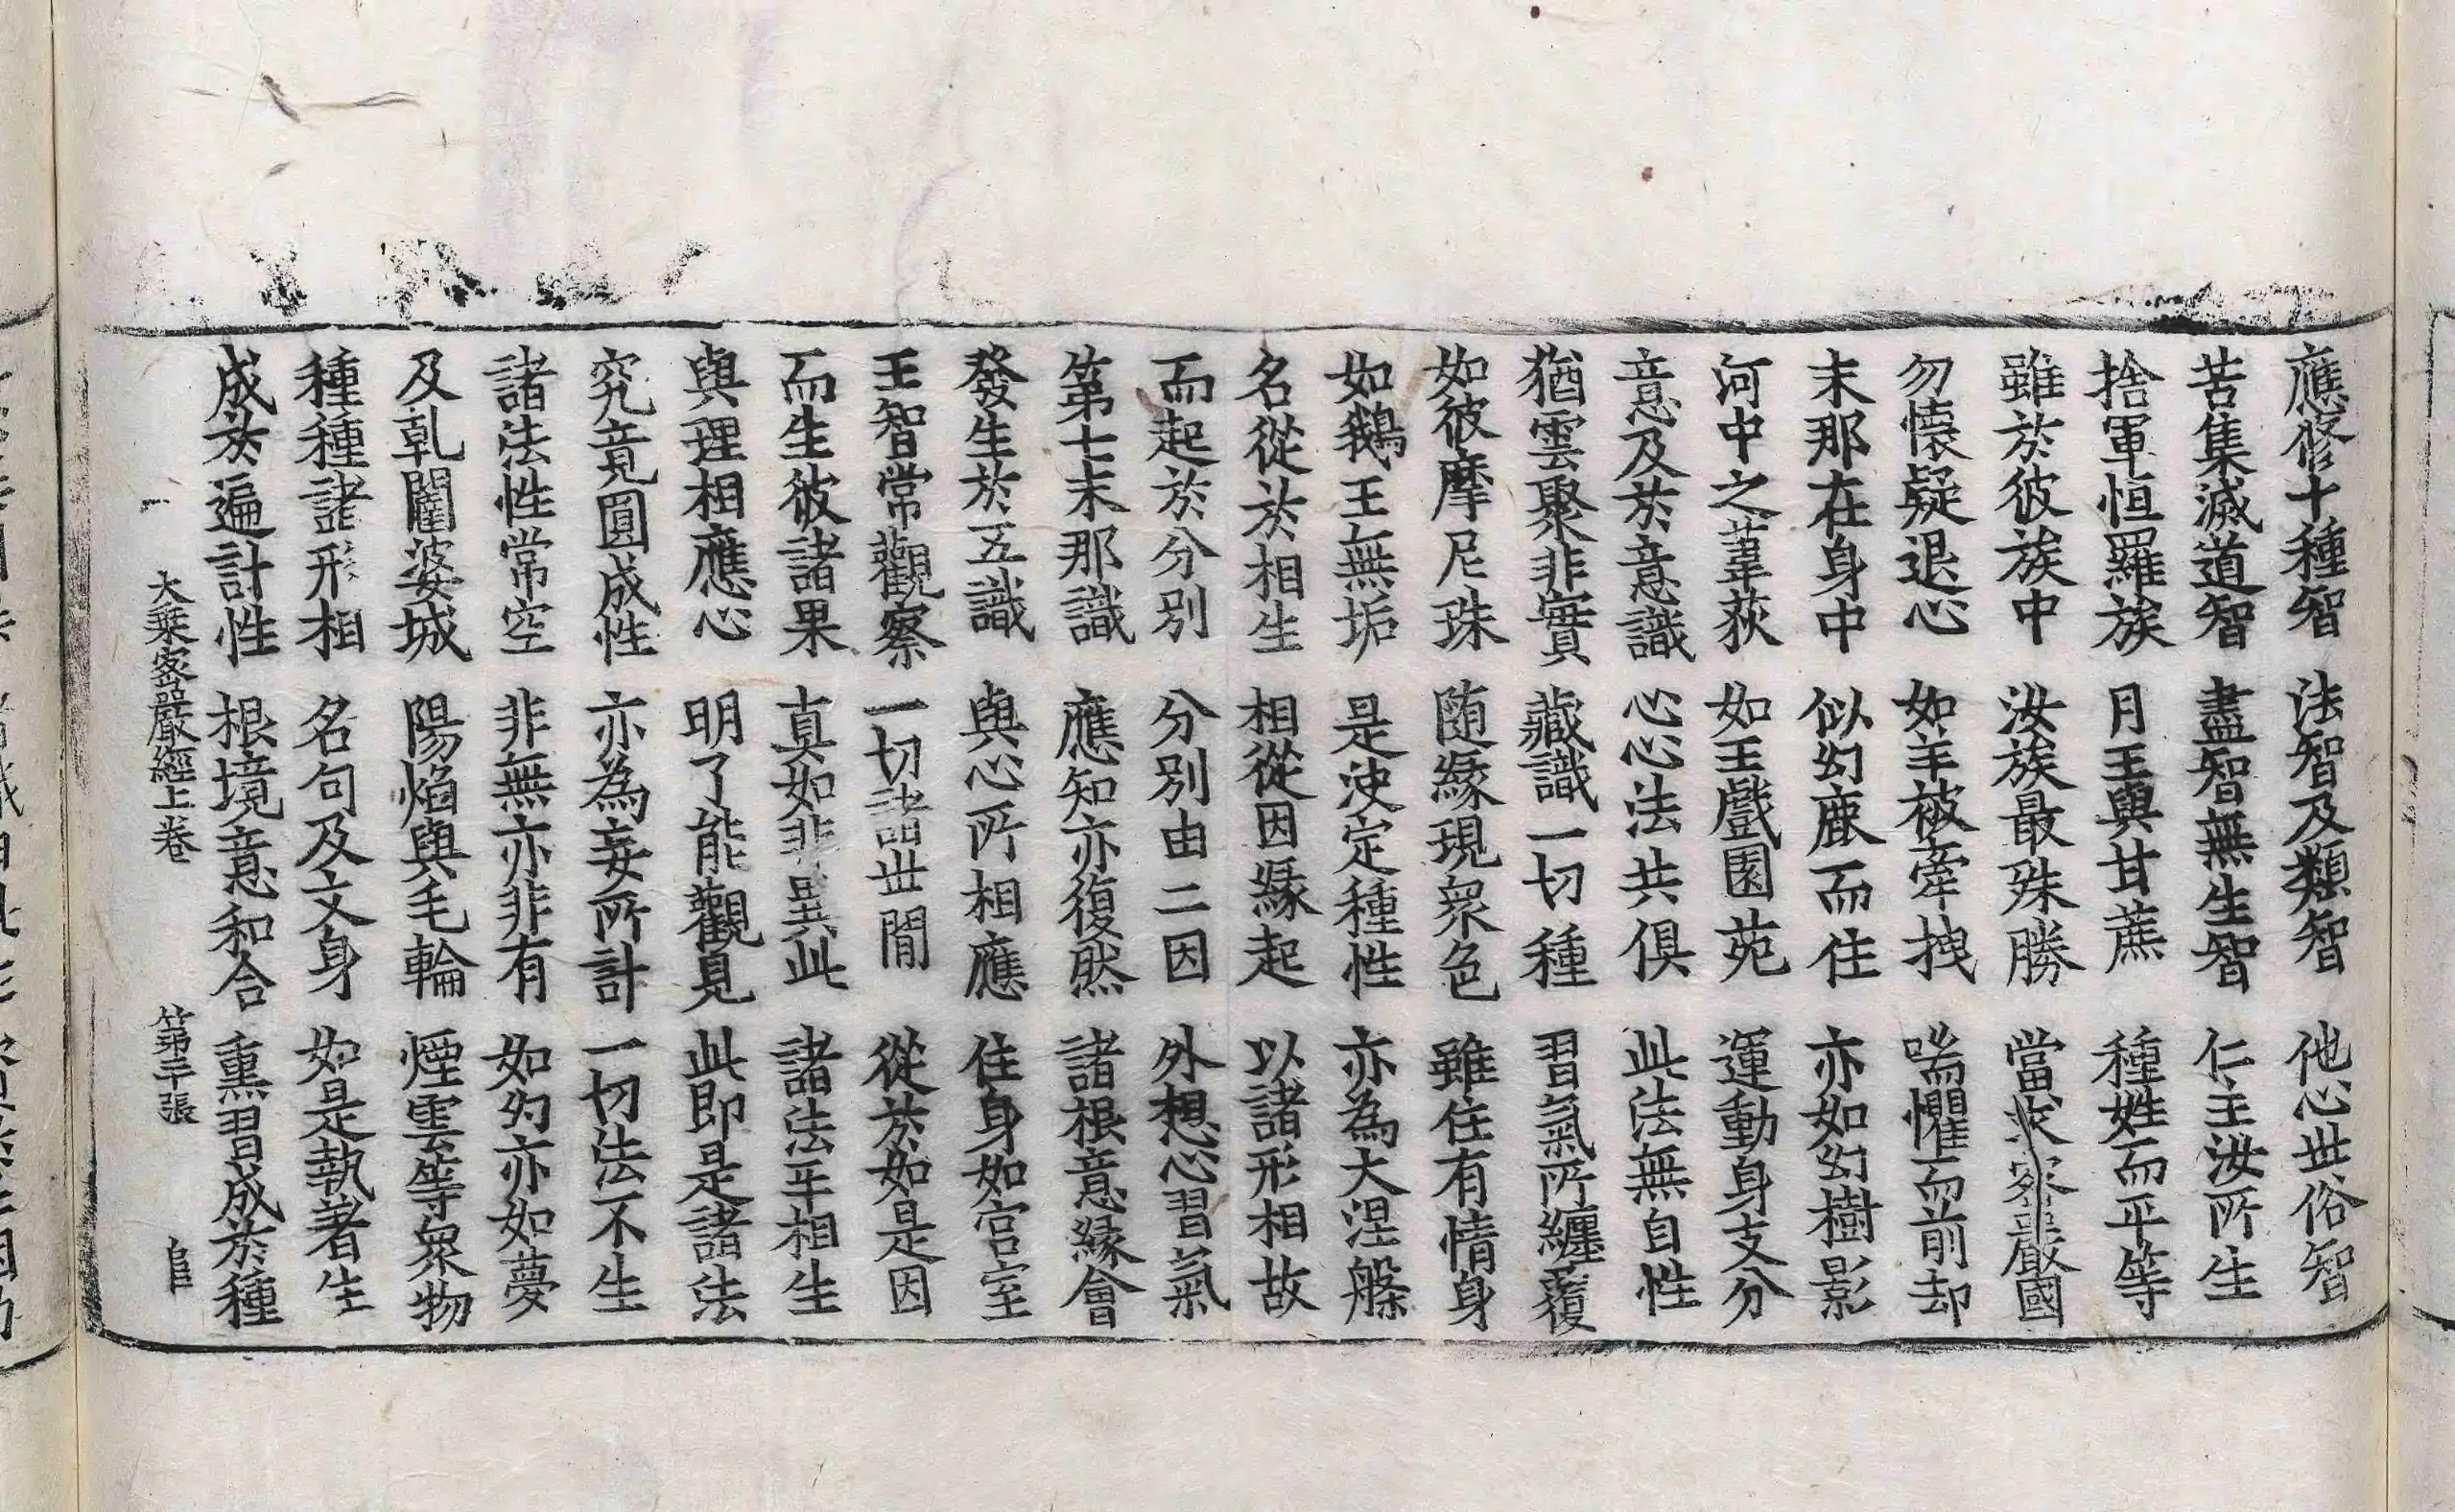 應修十種智　法智及類智　他心世俗智
苦集滅道智　盡智無生智　仁主汝所生
捨軍恒羅族　月王與甘蔗　種姓而平等
雖於彼族中　汝族最殊勝　當求密嚴國
勿懷疑退心　如羊被牽拽　喘懼而前却
末那在身中　似幻鹿而住　亦如幻樹影
河中之葦荻　如王戲園苑　運動身支分
意及於意識　心心法共俱　此法無自性
猶雲聚非實　藏識一切種　習氣所纏覆
如彼摩尼珠　随緣現衆色　雖住有情身
如鵝王無垢　是決定種性　亦為大涅槃
名從於相生　相從因緣起　以諸形相故
而起於分別　分別由二因　外想心習氣
第七末那識　應知亦復然　諸根意緣會
發生於五識　與心所相應　住身如宮室
王智常觀察　一切諸世間　從於如是因
而生彼諸果　真如非異此　諸法平相生
與理相應心　明了能觀見　此即是諸法
究竟圓成性　亦為妄所計　一切法不生
諸法性常空　非無亦非有　如幻亦如夢
及乹闥婆城　陽焰與毛輪　煙雲等衆物
種種諸形相　名句及文身　如是執著生
成於遍計性　根境意和合　熏習成於種
大乘密嚴經上卷　第二十張